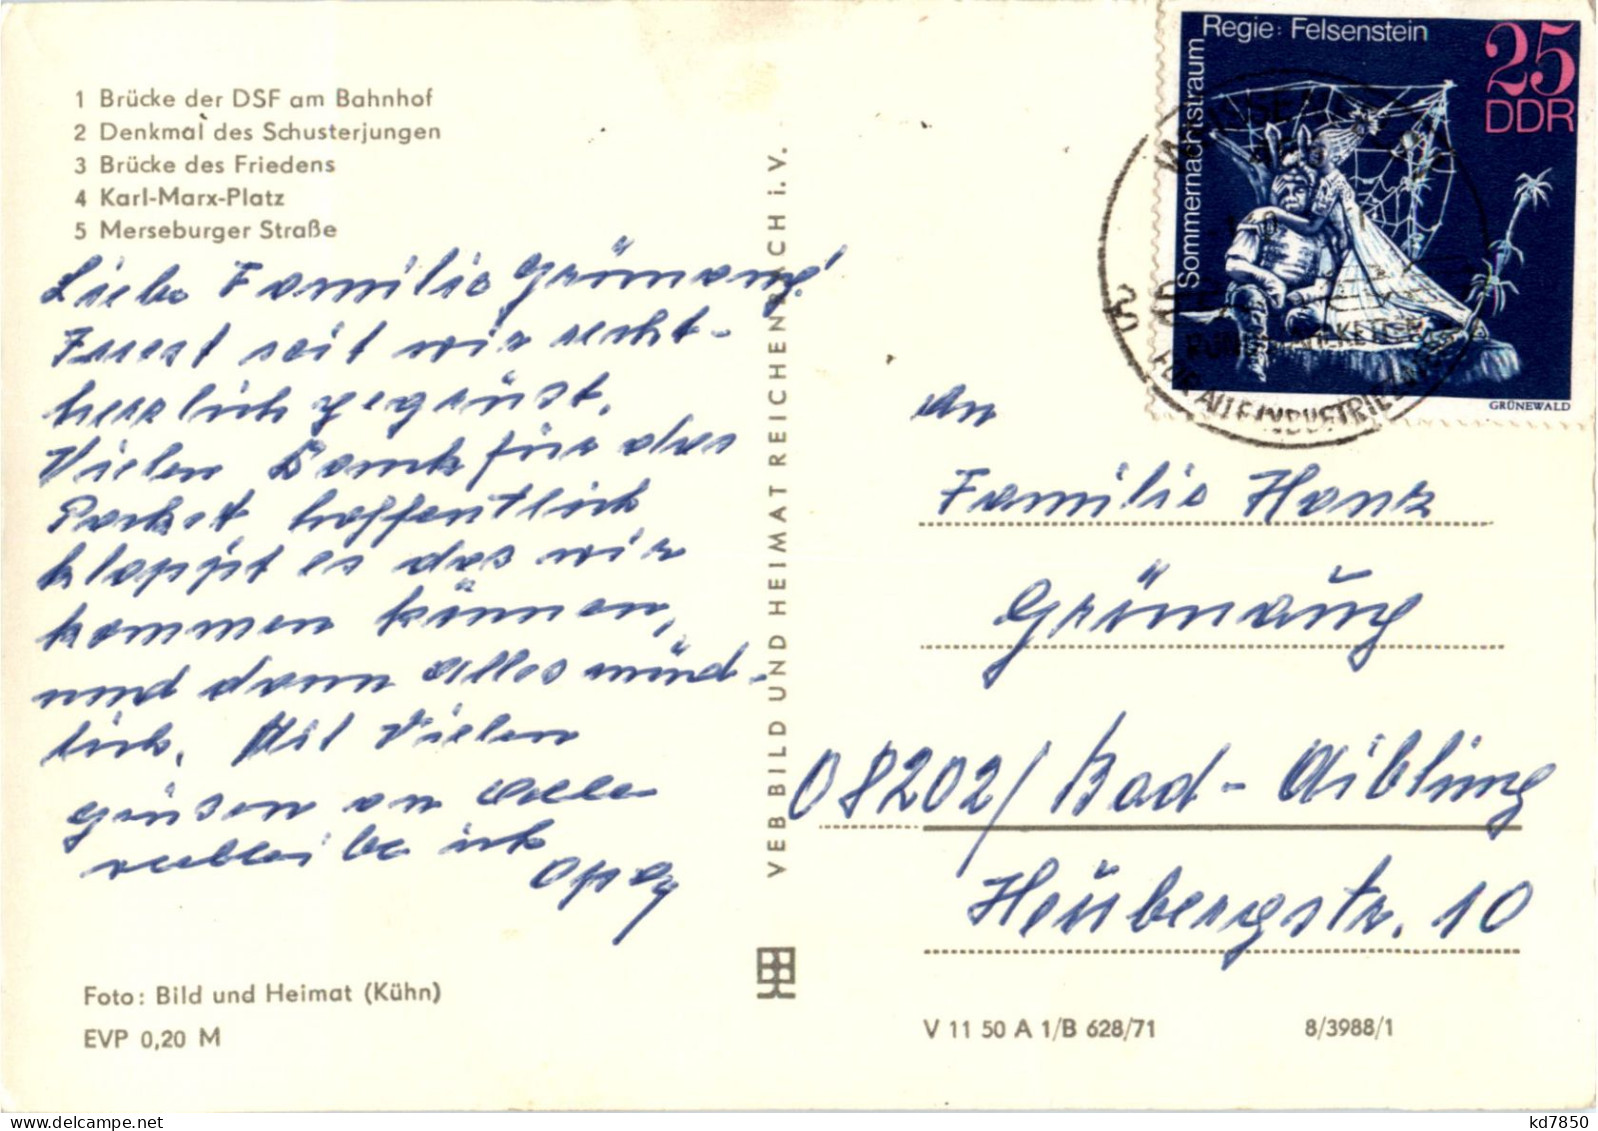 1 Brücke der DSF am Bahnhof
2 Denkmal des Schusterjungen
3 Brücke des Friedens
4 Karl-Marx-Platz
5 Merseburger Straße
Liebe Familie Grömaung!
Zuerst seit wir recht-
herzlich gegrüst.
Vielen Dank für das
Packet hoffentlich
klappt es das wir
kommen können,
und dann alles münd-
lich. Mit Vielen
grüsen an alle
verbleibe ich
Opa
Foto: Bild und Heimat (Kühn)
EVP 0,20 M
VEB BILD UND HEIMAT REICHENBACH i. V.
Sommernachtstraum
Regie: Felsenstein
25
DDR
GRÜNEWALD
WEISSENFELS
FÜR ALLE INDUSTRIEZWEIGE
An
Familie Hanz
Grömaung
08202/ Bad-Aibling
Heubergstr. 10
V 11 50 A 1/B 628/71
8/3988/1
© www.delcampe.net
kd7850